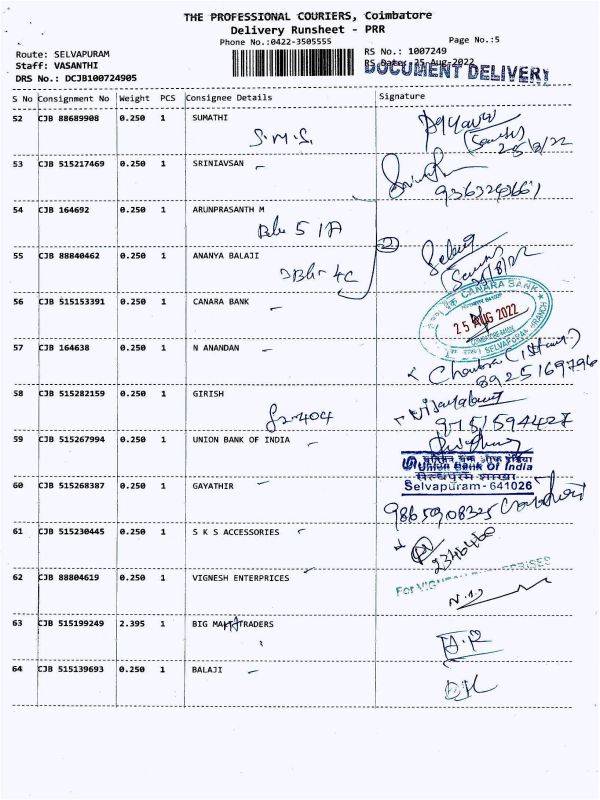 THE PROFESSIONAL COURIERS, Coimbatore
Delivery Runsheet - PRR
Phone No.:0422-3505555
Page No.:5
Route: SELVAPURAM
RS No.: 1007249
Staff: VASANTHI
RS Date: 25-Aug-2022
DOCUMENT DELIVERY
DRS No.: DCJB100724905
S No Consignment No Weight PCS Consignee Details Signature
52 CJB 88689908 0.250 1 SUMATHI
S.M.S.
25/8/22
53 CJB 515217469 0.250 1 SRINIAVSAN
54 CJB 164692 0.250 1 ARUNPRASANTH M
5 1A
2
55 CJB 88840462 0.250 1 ANANYA BALAJI
4C
56 CJB 515153391 0.250 1 CANARA BANK
CANARA BANK
25 AUG 2022
SELVAPURAM BRANCH
57 CJB 164638 0.250 1 N ANANDAN
8925169796
58 CJB 515282159 0.250 1 GIRISH
404
9751594427
59 CJB 515267994 0.250 1 UNION BANK OF INDIA
यूनियन बैंक ऑफ इंडिया
Union Bank Of India
Selvapuram-641026
60 CJB 515268387 0.250 1 GAYATHIR
9865908325
61 CJB 515230445 0.250 1 S K S ACCESSORIES
62 CJB 88804619 0.250 1 VIGNESH ENTERPRICES
For
63 CJB 515199249 2.395 1 BIG TRADERS
64 CJB 515139693 0.250 1 BALAJI